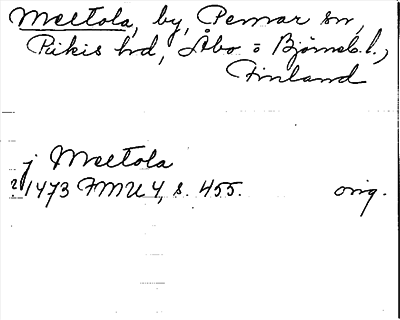 Meltola, by, Pemar sn,
Pikis hd, Åbo o Björneb. l.,
Finland
j Meltola
1473 FMU 4, s. 455. orig.